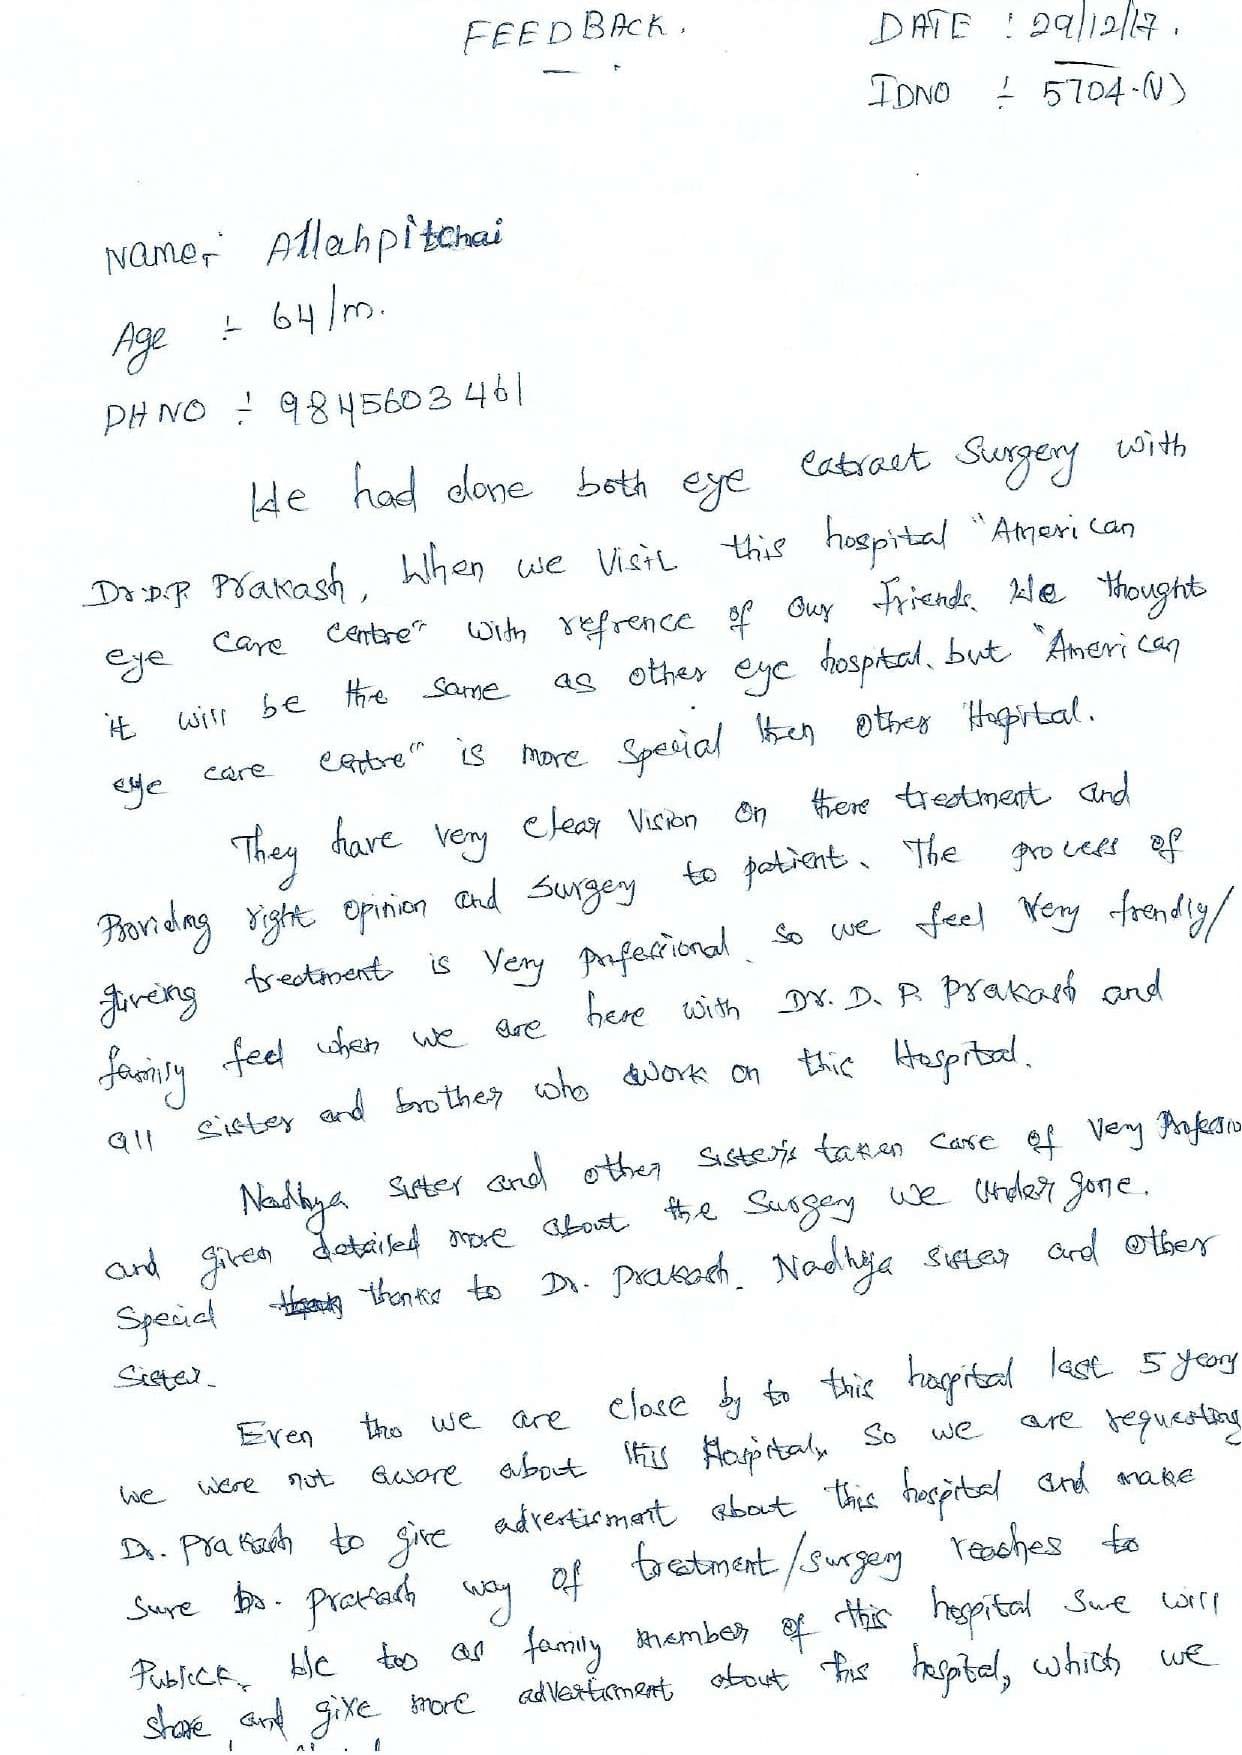 FEEDBACK.
DATE : 29/12/17.
IDNO :- 5704-(V)
Name:- Allahpitchai
Age :- 64/m.
PHNO :- 9845603461
He had done both eye catract Surgery with
Dr.D.P. Prakash, When we Visit this hospital "American
eye care centre" with refrence of our Friends. We thought
it will be the same as other eye hospital. but "American
eye care centre" is more Special then other Hospital.
They have very clear Vision on there treatment and
Providing right opinion and surgery to patient. The process of
giveing treatment is Very professional so we feel Very frendly/
family feel when we are here with Dr. D. P. Prakash and
all sister and brother who work on this Hospital.
Nadhya sister and other sister's taken care of Very Professio
and given detailed more about the Surgery we under gone.
Special thanks to Dr. Prakash. Nadhya sister and other
Sister.
Even tho we are close by to this hospital last 5 years
we were not aware about this Hospital, so we are requesting
Dr. Prakash to give advertisment about this hospital and make
Sure Dr. Prakash way of treatment/surgery reaches to
Publick. We too as family member of this hospital Sure will
share and give more advertisment about this hospital, which we